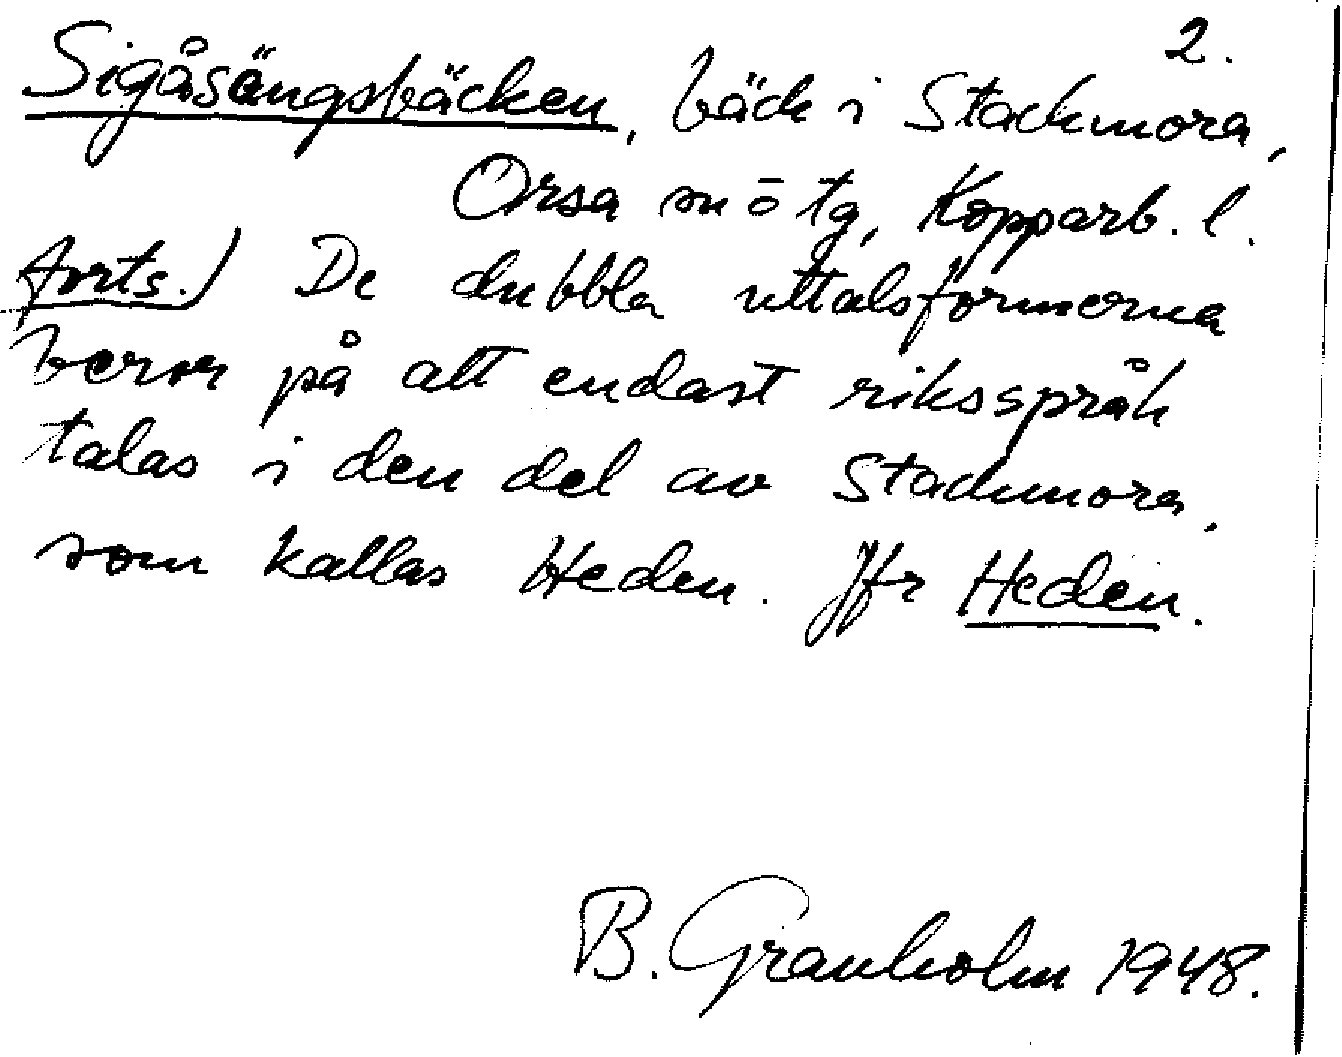 2.
Sigåsängsbäcken, bäck i Stackmora,
Orsa sn o tg, Kopparb. l.
forts.) De dubbla uttalsformerna
beror på att endast riksspråk
talas i den del av Stackmora,
som kallas Heden. Jfr Heden.
B. Granholm 1948.